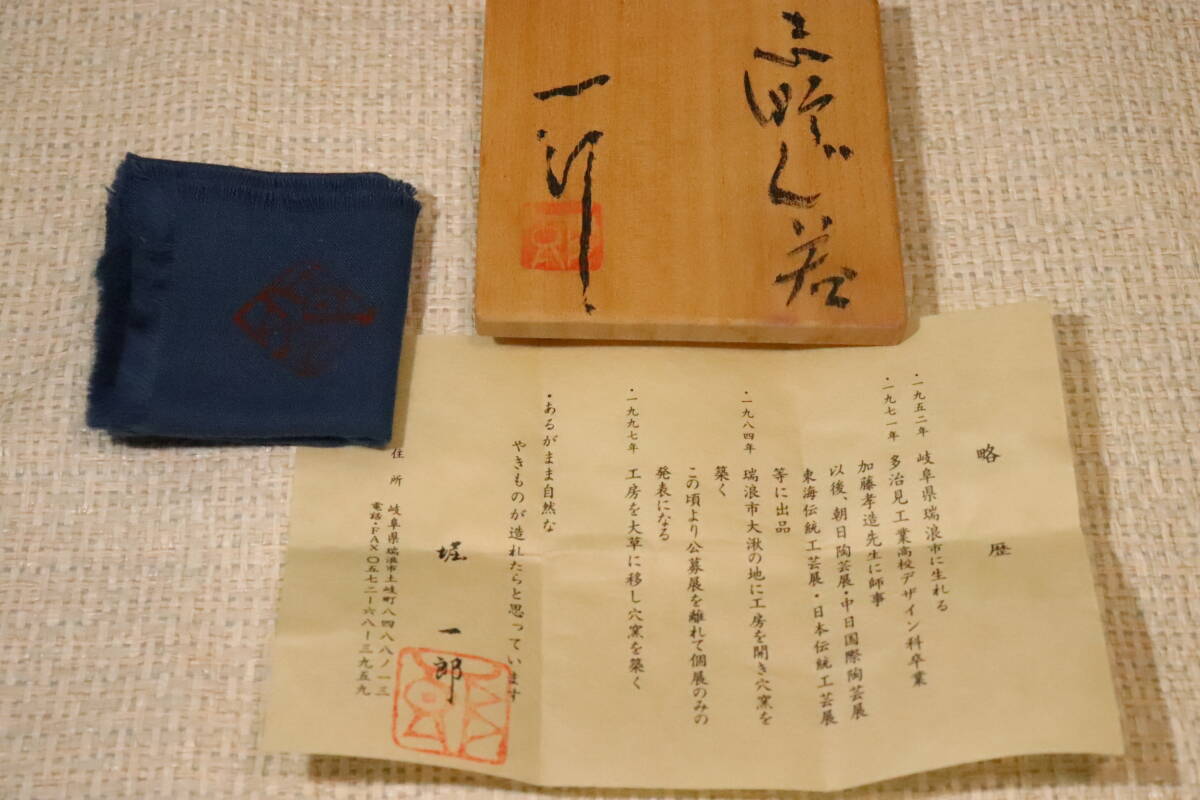 志野ぐい呑
一郎
略歴
・一九五二年 岐阜県瑞浪市に生れる
・一九七一年 多治見工業高校デザイン科卒業
加藤孝造先生に師事
以後、朝日陶芸展・中日国際陶芸展
東海伝統工芸展・日本伝統工芸展
等に出品
・一九八四年 瑞浪市大湫の地に工房を開き穴窯を
築く
この頃より公募展を離れて個展のみの
発表になる
・一九九七年 工房を大草に移し穴窯を築く
・あるがまま自然な
やきものが造れたらと思っています
堀一郎
住所 岐阜県瑞浪市土岐町八四八八ノ一三
電話・FAX〇五七二ー六八ー三九五九